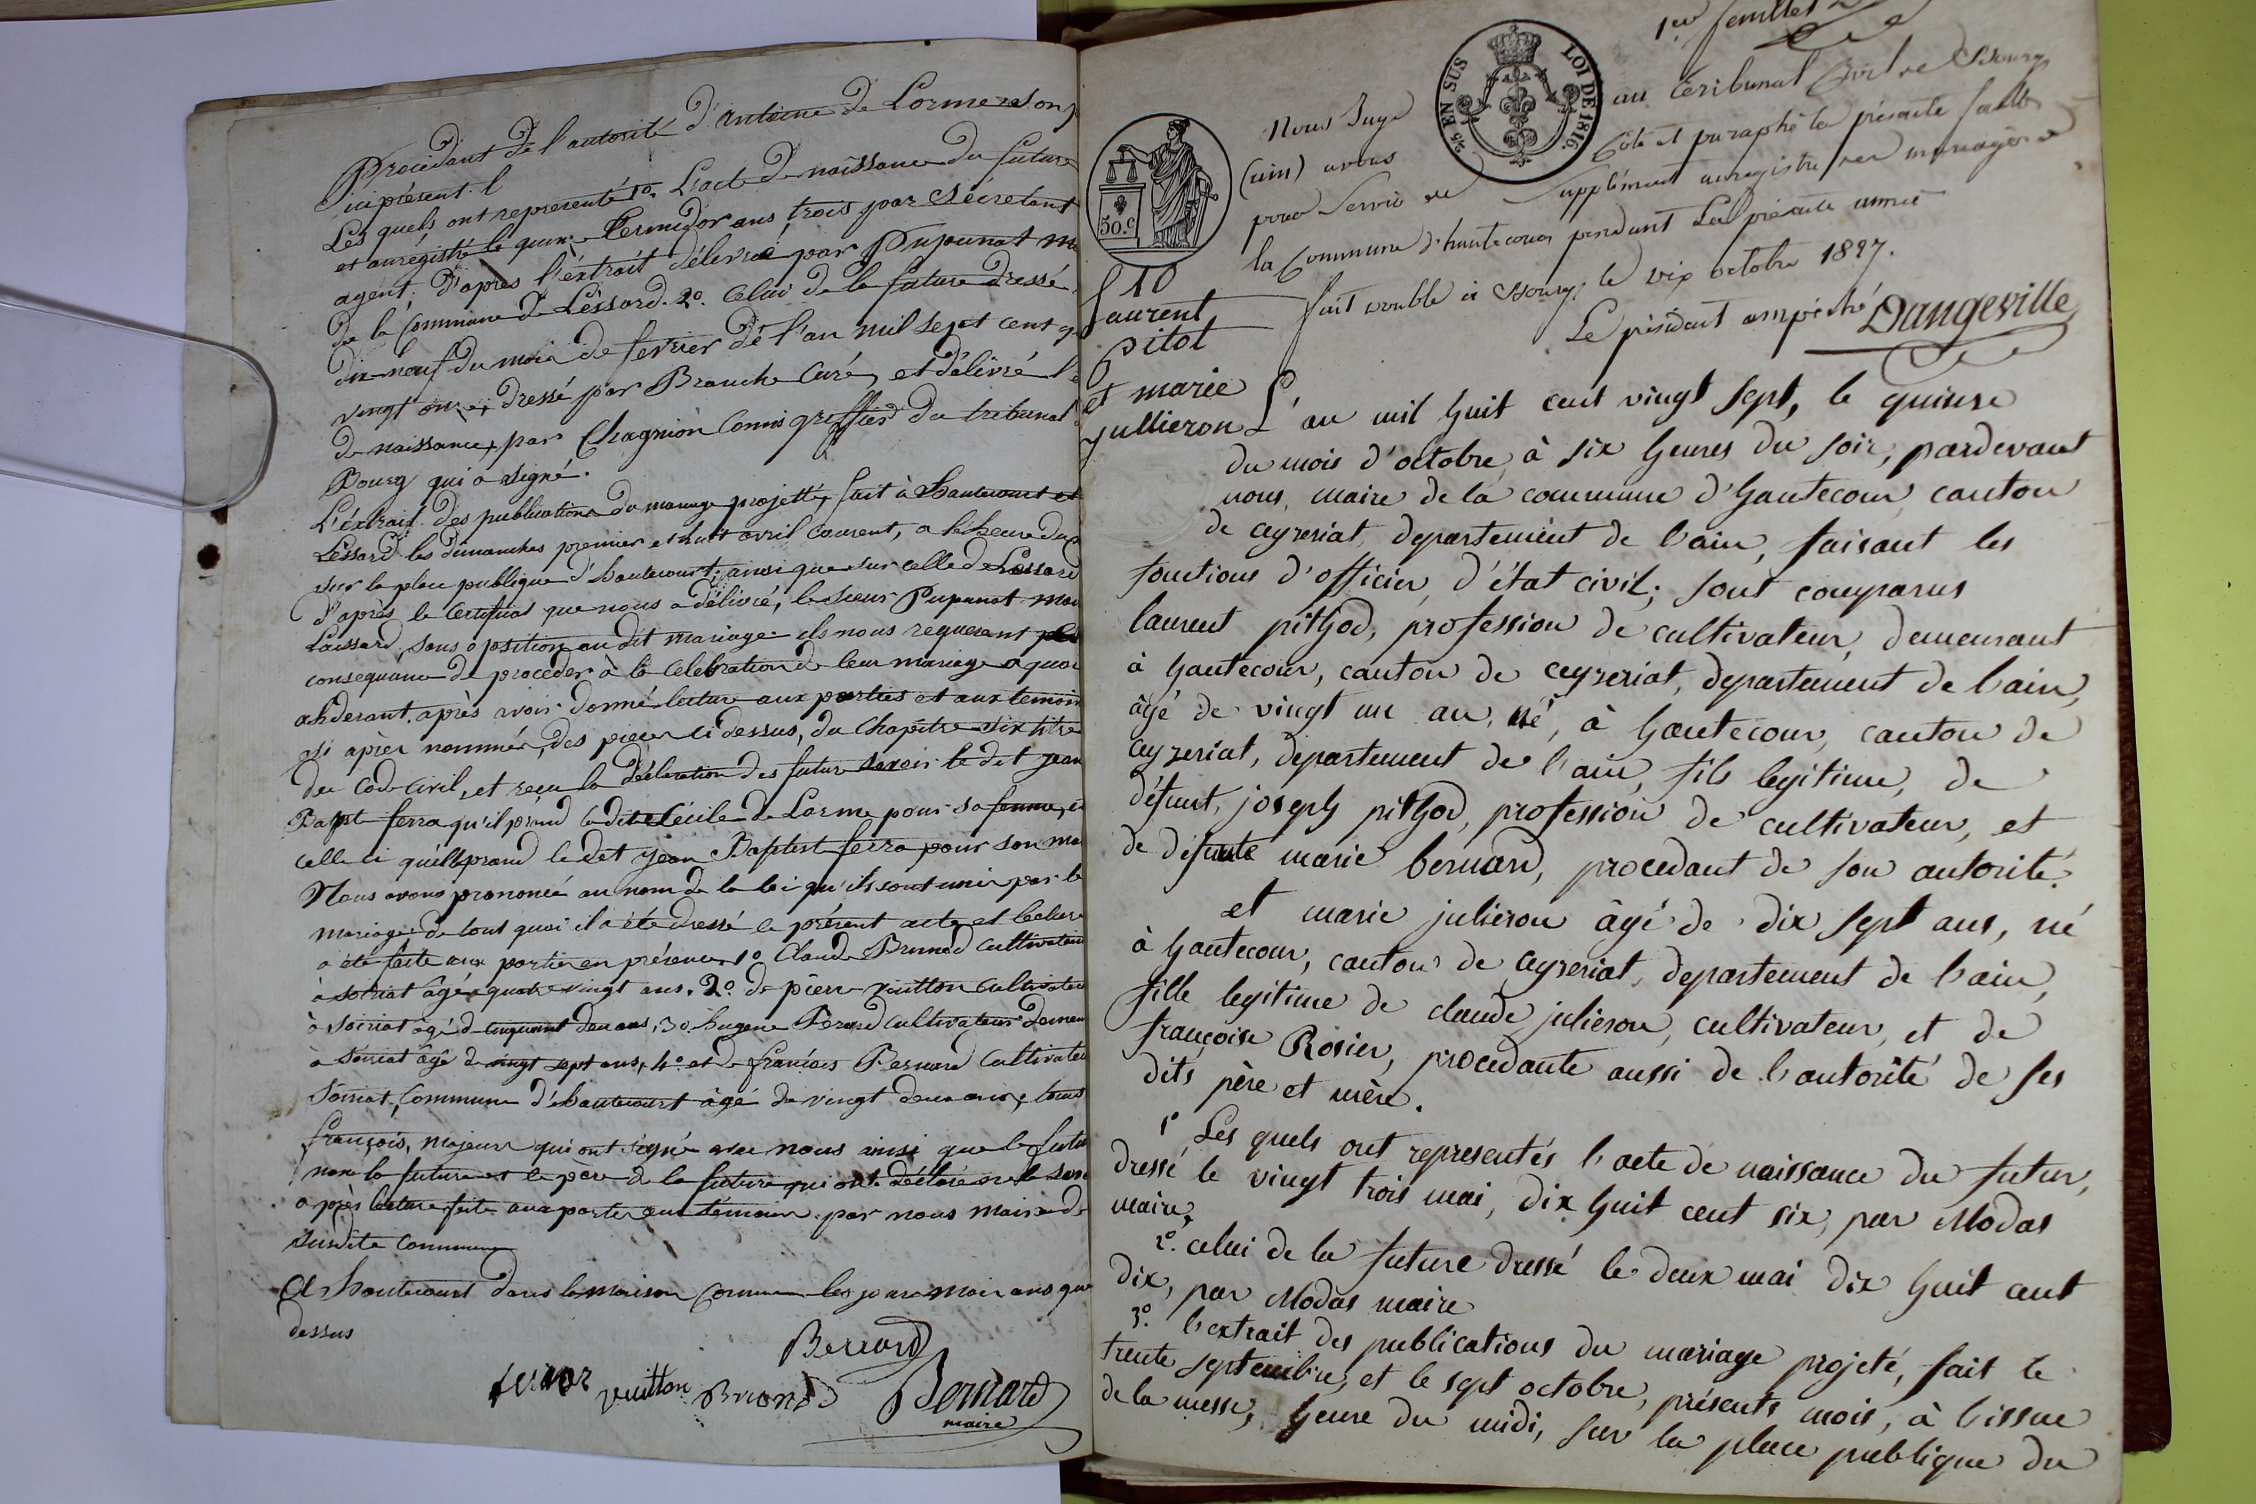 Procédant de l'autorité d'antoine de Lorme son p
ici présent.
Les quels ont representé 1o. L'acte de naissance du futur
et enrégistré le quinze Termidor ans trois par Sécretant
agent, d'apres l'éxtrait délivré par Pupunat m
de la Commune de Léssard. 2o. Celui de la future dressé
dix neuf du moi de fevrier dé l'an mil sept cent q
vingt onze dressé par Branche Curé, et délivré l
de naissance, par Chagnion Comis greffier du tribunal
Bourg qui a signé.
L'éxtrait des publications du mariage projetté, fait à hautecourt et
Léssard les dimanches premier et huit avril courent, a l'heure du
sur la place publique d'hautecourt, ainsi que sur celle de Lessard
d'après le Certificat que nous a délivré, le sieur Pupunat mai
Laissard, sans oposition au dit mariage ils nous requerant
consequance de procéder à la célébration de leur mariage a quoi
ahderant, après avoir donné lecture aux parties et aux temoin
qsi apièr nommée, des pieces ci dessus, du Chapitre six titre
du Code Civil, et reçu la déclaration des futur savoir le dit jean
Bapt ferra qu'il prend la dite Cécile de Lorme pour sa femme, et
celle ci qu'elle prand le dit jean Baptist ferra pour son ma
Nous avons prononcé au nom de la loi qu'ils sont unis par le
mariage de tout quoi il a été dressé le présent acte et lecture
a été faite aux partie en présence 1o Claude Brunod cultivateur
à soiriat âgé quatre vingt ans. 2o. de pierre vuitton cultivateu
à soiriat âgé de cinquant deux ans, 3o. hugene Pérard cultivateur demeu
a soiriat âgé de vingt sept ans, 4o. et de françois Bernard Cultivateu
Soiriat, Commune d'hautecourt agé de vingt deux ans, tous
françois, majeur qui ont signé avec nous ainsi que le futu
non la future et le père de la future qui ont déclaré ne le savoi
après lecture faite aux partie aux témoin par nous maire de
susdite commune
A hautecourt dans la maison Commune les jours mois ans que
dessus
Bernard
ferraz vuitton Brunod Bernard
maire
1er feuillet
25 EN SUS LOI DE 1816.
50.c
Nous Juge au tribunal Civil de Bourg
(ain) avons Coté et paraphé la présente feuille
pour servir de Supplément au registre des mariages de
la Commune d'hautecour pendant La présente année
fait double à Bourg le dix octobre 1827.
Le président empêché Dangeville
f 10
Laurent
Pitot
et marie
Jullieron
L'an mil huit cent vingt sept, le quinse
du mois d'octobre, à six heures du soir, pardevant
nous, maire de la commune d'hautecour, canton
de ceyzeriat, departement de l'ain, faisant les
fonctions d'officier d'état civil; sont comparus
laurent pithod, profession de cultivateur, demeurant
à hautecour, canton de ceyzeriat, departement de l'ain,
âgé de vingt un an, né, à hautecour, canton de
ceyzeriat, departement de l'ain, fils legitime, de
défunt, joseph pithod, profession de cultivateur, et
de defunte marie bernard, procedant de son autorité.
et marie julieron âgé de dix sept ans, né
à hautecour, canton de ceyzeriat, departement de l'ain,
fille legitime de claude julieron, cultivateur, et de
françoise Rosier, procedante aussi de l'autorité de ses
dits père et mère.
1o Les quels ont representés l'acte de naissance du futur,
dressé le vingt trois mai, dix huit cent six, par Modas
maire,
2o. celui de la future dressé le deux mai dix huit cent
dix, par Modas maire
3o. l'extrait des publications du mariage projeté, fait le
trente septembre, et le sept octobre, présents mois, à l'issue
de la messe, heure du midi, sur la place publique du